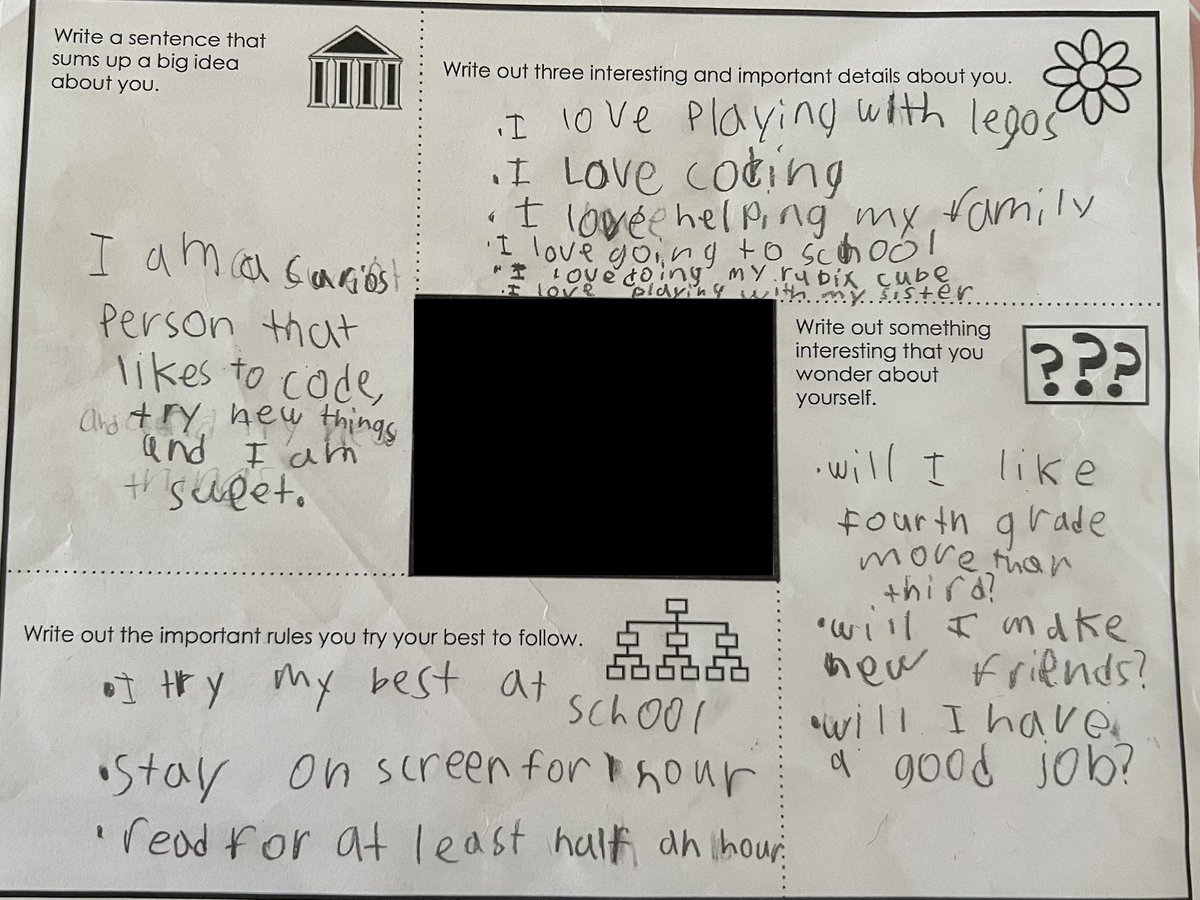 Write a sentence that
sums up a big idea
about you.
I am a curiost
person that
likes to code,
try new things
and I am
sweet.
Write out three interesting and important details about you.
.I love playing with legos
.I Love coding
.I love helping my family
.I love going to school
.I love doing my rubix cube
.I love playing with my sister
Write out something
interesting that you
wonder about
yourself.
???
.will I like
fourth grade
more than
third?
.will I make
new friends?
.will I have
a good job?
Write out the important rules you try your best to follow.
.I try my best at
school
.stay on screen for 1 hour
.read for at least half an hour